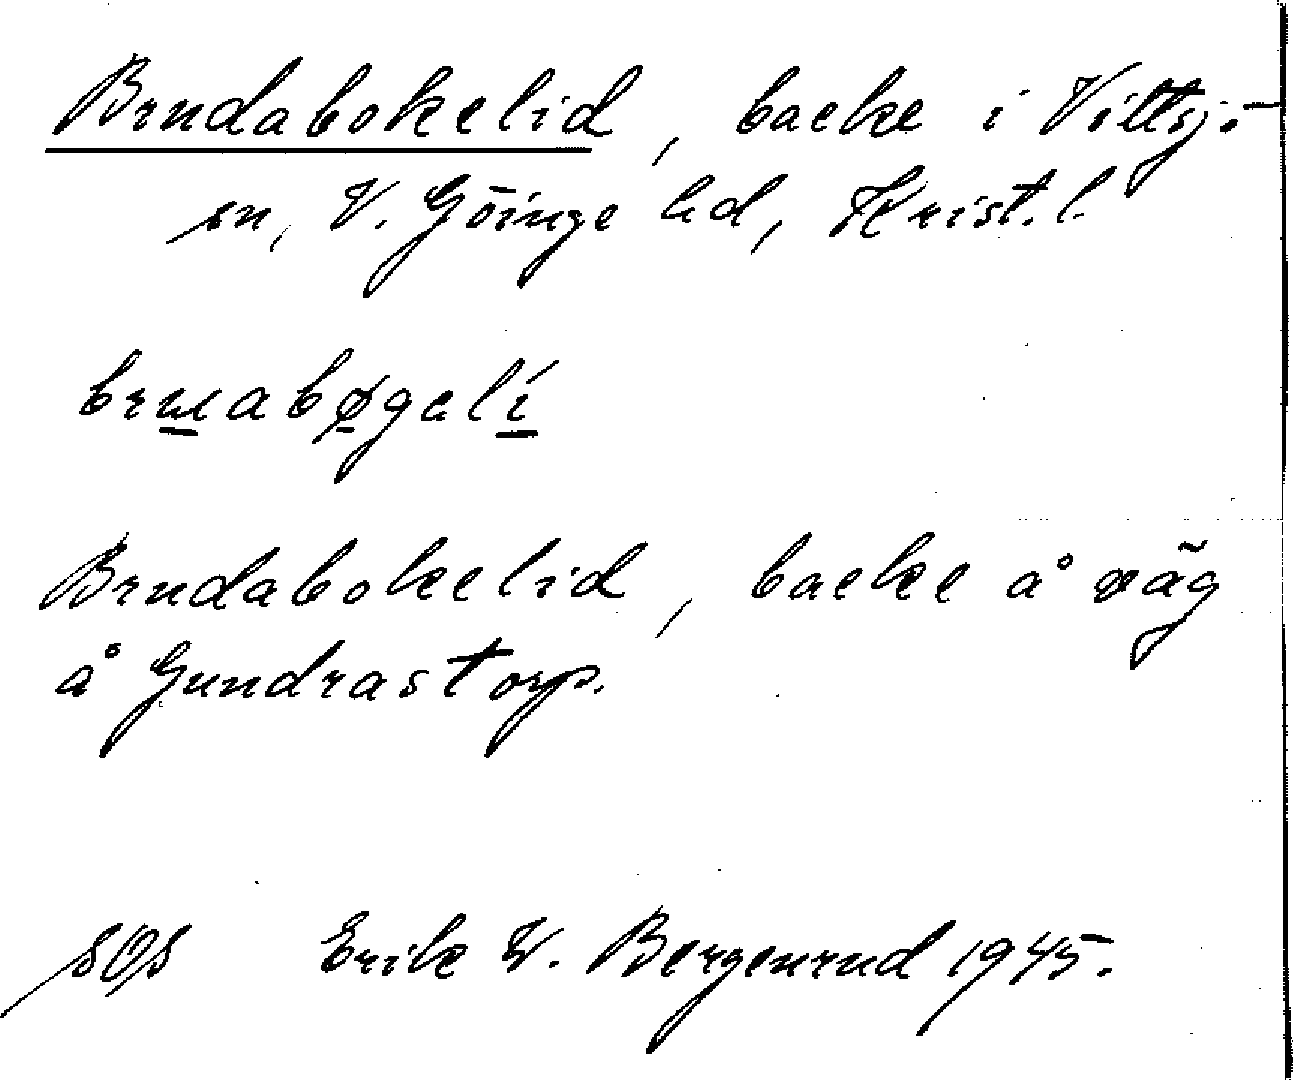 Brudabokelid, backe i Vittsjö
sn, V. Göinge hd, Krist. l.
bruabøgelí
Brudabokelid, backe å väg
å Gundrastorp.
SOS Erik W. Bergenrud 1945.